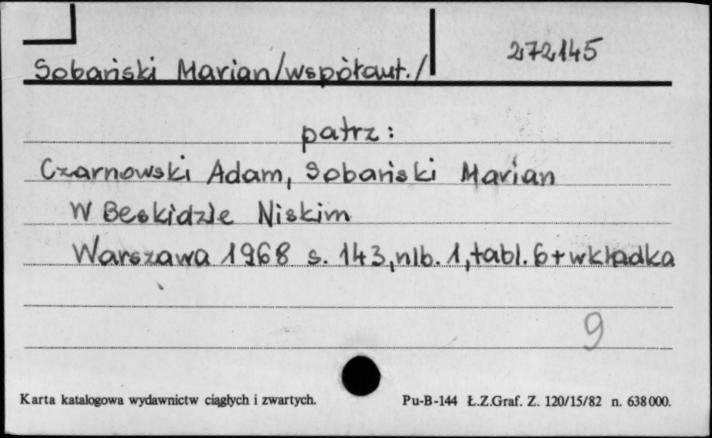 272145
Sobański Marian/współaut./
patrz:
Czarnowski Adam, Sobański Marian
W Beskidzie Niskim
Warszawa 1968 s. 143, nlb. 1, tabl. 6 + wkładka
9
Karta katalogowa wydawnictw ciągłych i zwartych. Pu-B-144 Ł.Z.Graf. Z. 120/15/82 n. 638000.